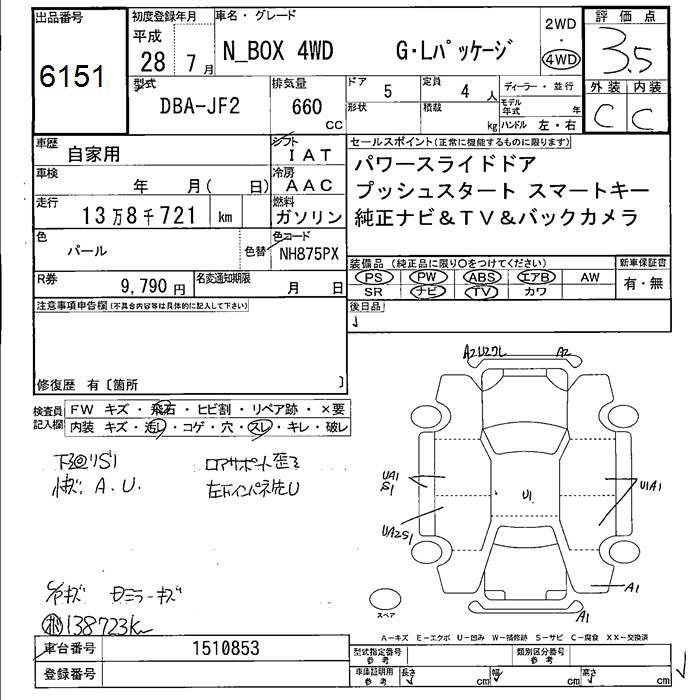 出品番号
6151
初度登録年月
平成
28 7月
車名・グレード
N_BOX 4WD G・Lパッケージ
2WD
・
4WD
評価点
3.5
型式
DBA-JF2
排気量
660
cc
ドア 5
形状
定員 4 人
積載 kg
ディーラー・並行
モデル年式 年
ハンドル 左・右
外装 内装
C C
車歴
自家用
シフト
IAT
セールスポイント(正常に機能するものに限ります)
パワースライドドア
プッシュスタート スマートキー
純正ナビ&TV&バックカメラ
車検
年 月( 日)
冷房
AAC
走行
13万8千721 km
燃料
ガソリン
色
パール
色替
色コード
NH875PX
装備品(純正品に限り○をつけてください)
PS PW ABS エアB AW
SR ナビ TV カワ
新車保証書
有・無
R券
9,790円
名変通知期限
月 日
後日品
注意事項申告欄(不具合内容等は具体的に記入して下さい)
修復歴 有〔箇所 〕
検査員記入欄
FW キズ・飛石・ヒビ割・リペア跡・×要
内装 キズ・汚レ・コゲ・穴・スレ・キレ・破レ
下回りS1
ロアサポート歪ミ
A.U.
A2U2ワレ A2
UA1
S1
UA2S1
U1
U1A1
A1
A1
スペア
ミラーキズ
138723km
A-キズ E-エクボ U-凹み W-補修跡 S-サビ C-腐食 XX-交換済
車台番号
1510853
登録番号
型式指定番号
参考
類別区分番号
参考
車庫証明用
参考
長さ cm 幅 cm 高さ cm